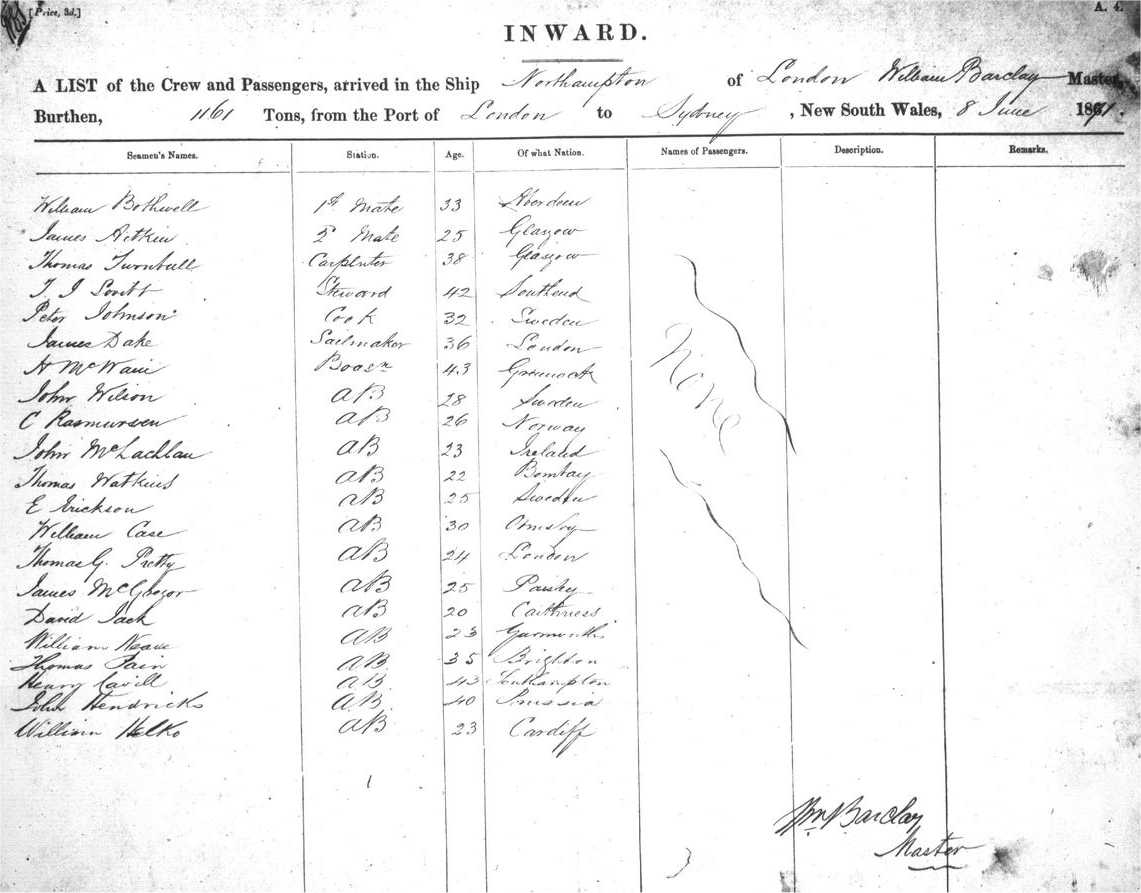 [Price, 3d.]
A. 4.
INWARD.
A LIST of the Crew and Passengers, arrived in the Ship Northampton of London William Barclay Master,
Burthen, 1161 Tons, from the Port of London to Sydney, New South Wales, 8 June 1871.
Seamen's Names. Station. Age. Of what Nation. Names of Passengers. Description. Remarks.
William Bothwell 1st Mate 33 Aberdeen
James Aitkin 2d Mate 25 Glasgow
Thomas Turnbull Carpenter 38 Glasgow
T J Steward 42 Southend
Peter Johnson Cook 32 Sweden
James Dake Sailmaker 36 London
H McWain Boasn 43 Greenock
John Wilson AB 28 Sweden
C Rasmursen AB 26 Norway
John McLachlan AB 23 Ireland
Thomas Watkins AB 22 Bombay
E Erickson AB 25 Sweden
William Case AB 30
Thomas G. Pretty AB 24 London
James McGregor AB 25 Paisley
David Jack AB 20 Caithness
William Neave AB 23 Yarmouth
Thomas Pain AB 35 Brighton
Henry Cavill AB 43 Southampton
John Hendricks AB 40 Prussia
William Helko AB 23 Cardiff
None
Wm Barclay
Master